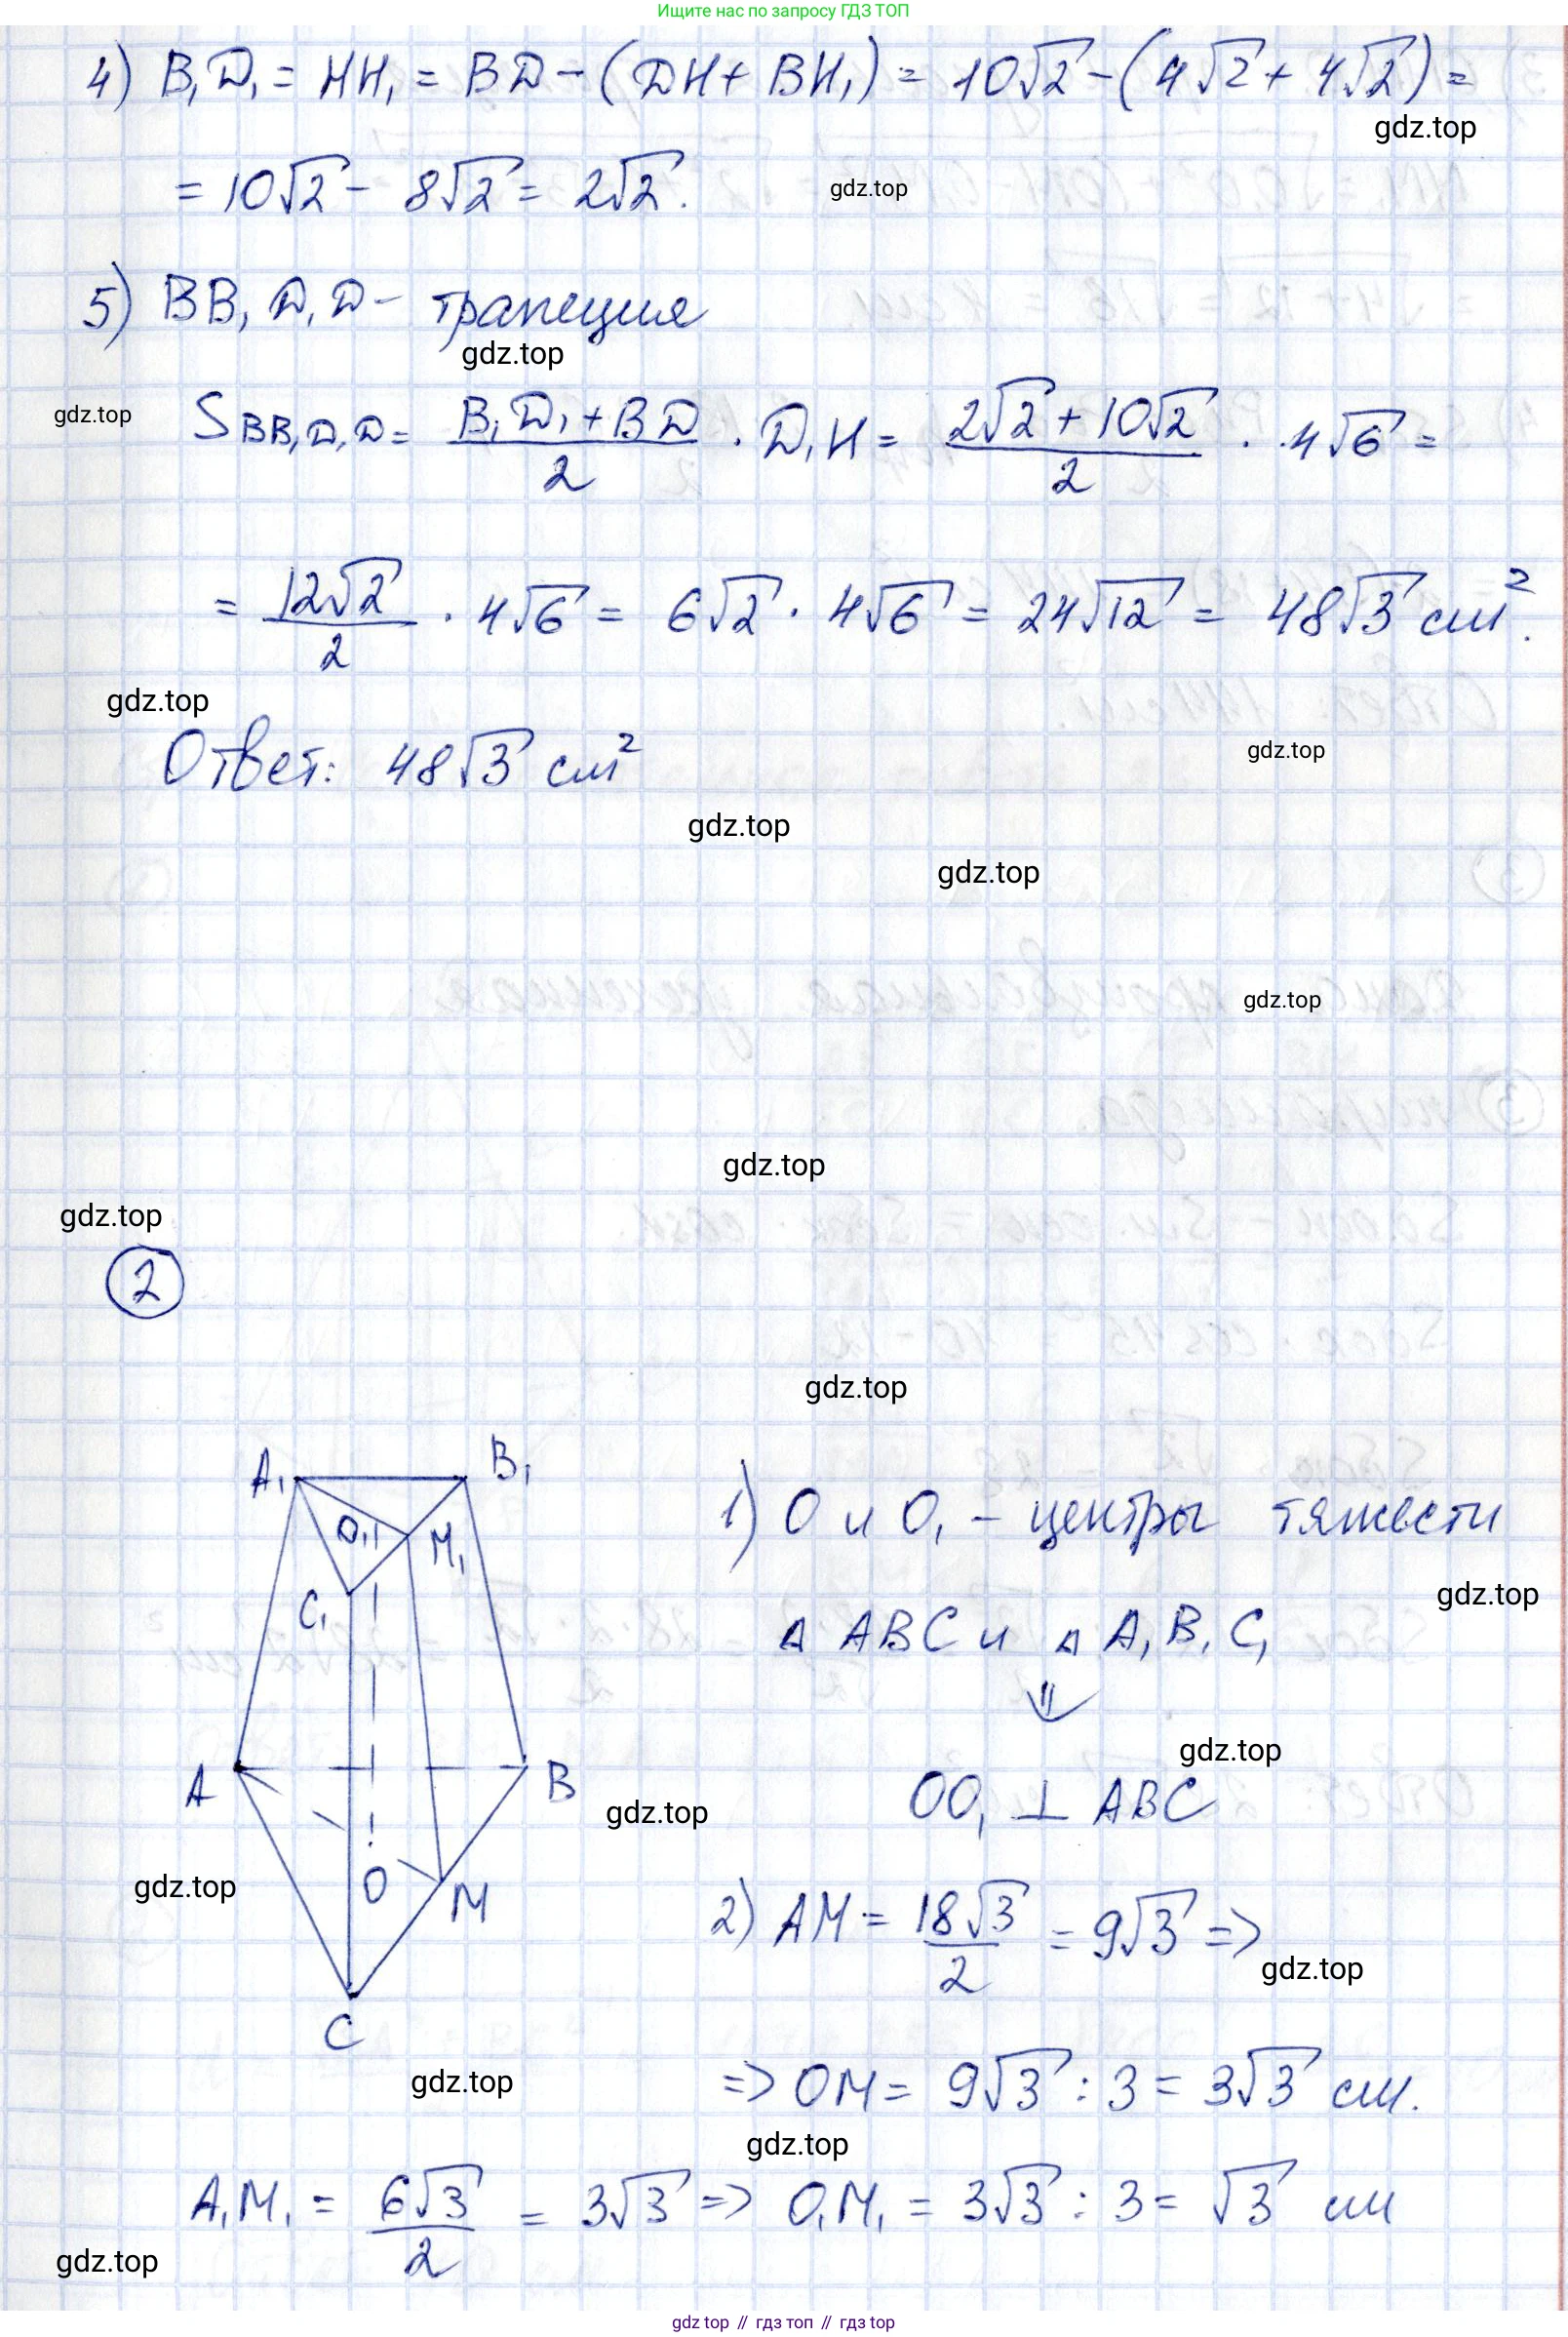 Ищите нас по запросу ГДЗ ТОП
4) B₁D₁ = HH₁ = BD − (DH + BH₁) = 10√2 − (4√2 + 4√2) =
gdz.top
= 10√2 − 8√2 = 2√2.
gdz.top
5) BB₁D₁D − трапеция
gdz.top
gdz.top
S BB₁D₁D = (B₁D₁ + BD)/2 · D₁H = (2√2 + 10√2)/2 · 4√6 =
= 12√2/2 · 4√6 = 6√2 · 4√6 = 24√12 = 48√3 см².
gdz.top
Ответ: 48√3 см²
gdz.top
gdz.top
gdz.top
gdz.top
gdz.top
gdz.top
2
gdz.top
A₁ B₁
O₁ M₁
C₁
A B
O M
C
1) O и O₁ − центры тяжести
gdz.top
△ ABC и △ A₁B₁C₁
⇓
gdz.top
OO₁ ⊥ ABC
gdz.top
gdz.top
2) AM = 18√3/2 = 9√3 =>
gdz.top
gdz.top
=> OM = 9√3 : 3 = 3√3 см.
gdz.top
A₁M₁ = 6√3/2 = 3√3 => O₁M₁ = 3√3 : 3 = √3 см
gdz.top
gdz top // гдз топ // гдз top